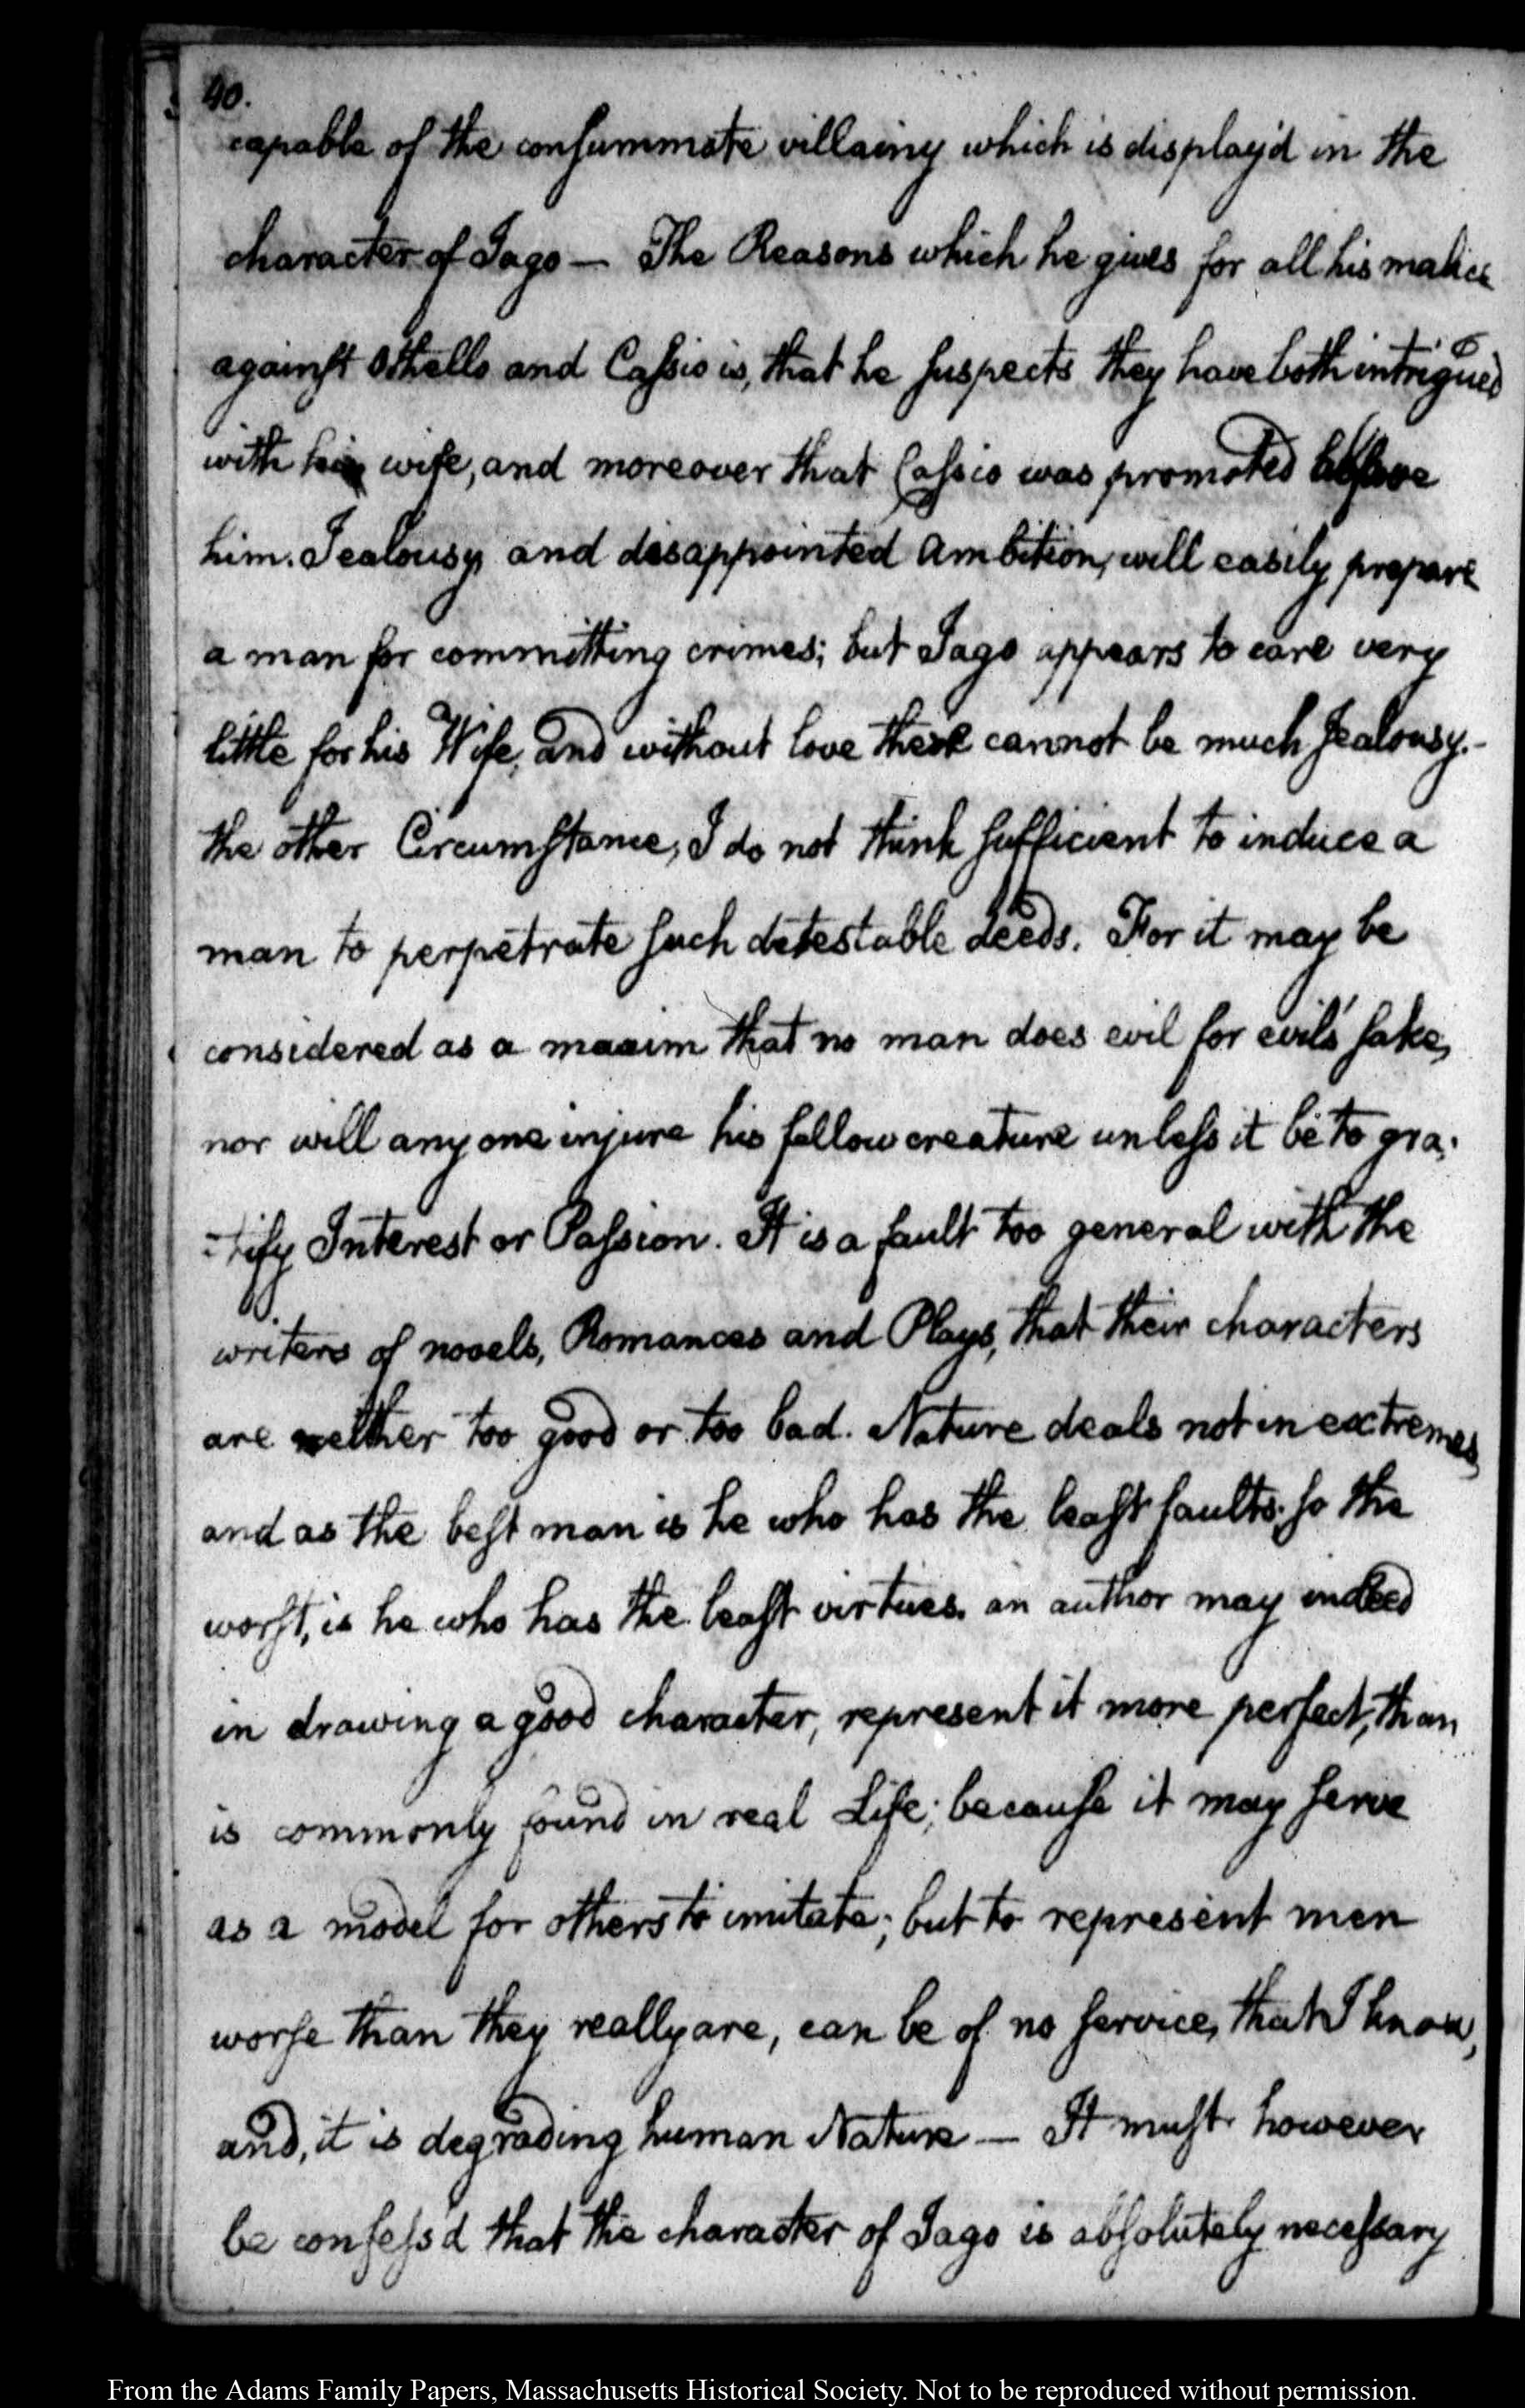 40.
capable of the consummate villainy which is display'd in the
character of Iago — The Reasons which he gives for all his malice
against Othello and Cassio is, that he suspects they have both intrigued
with his wife, and moreover that Cassio was promoted before
him. Jealousy, and disappointed Ambition, will easily prepare
a man for committing crimes; but Iago appears to care very
little for his Wife, and without love there cannot be much Jealousy.-
the other Circumstance, I do not think sufficient to induce a
man to perpetrate such detestable deeds. For it may be
considered as a maxim that no man does evil for evil's sake,
nor will any one injure his fellow creature unless it be to gra-
-tify Interest or Passion. It is a fault too general with the
writers of novels, Romances and Plays, that their characters
are neither too good or too bad. Nature deals not in extremes,
and as the best man is he who has the least faults, so the
worst, is he who has the least virtues. an author may indeed
in drawing a good character, represent it more perfect, than
is commonly found in real Life; because it may serve
as a model for others to imitate; but to represent men
worse than they really are, can be of no service, that I know,
and, it is degrading human Nature — It must however
be confess'd that the character of Iago is absolutely necessary
From the Adams Family Papers, Massachusetts Historical Society. Not to be reproduced without permission.